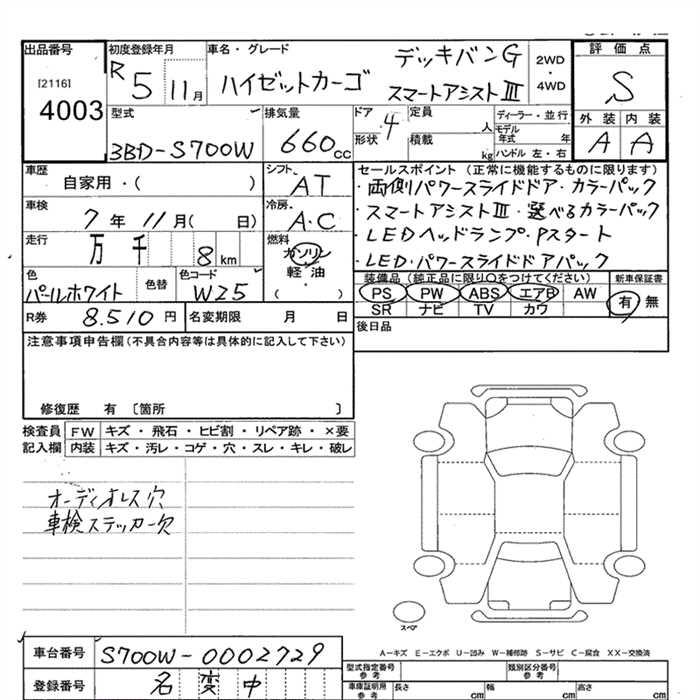 出品番号 初度登録年月 車名・グレード 評価点
[2116] 4003
R 5 11月 ハイゼットカーゴ デッキバンG スマートアシストⅢ
2WD・4WD
S
外装 内装
A A
型式 排気量 ドア 定員 ディーラー・並行
3BD-S700W 660cc 4 人
モデル年式 年
形状 積載 kg ハンドル 左・右
車歴 シフト セールスポイント (正常に機能するものに限ります)
自家用・( ) AT
・両側パワースライドドア・カラーパック
車検 7年11月( 日) 冷房 A.C
・スマートアシストⅢ・選べるカラーパック
走行 万 千 8 km 燃料 ガソリン
・LEDヘッドランプ・Pスタート
軽・油
( )
・LED・パワースライドドアパック
色 パールホワイト 色替 色コード W25
装備品(純正品に限り○をつけてください) 新車保証書
PS PW ABS エアB AW 有 無
SR ナビ TV カワ
R券 8.510円 名変期限 月 日
後日品
注意事項申告欄(不具合内容等は具体的に記入して下さい)
修復歴 有 〔箇所 〕
検査員 FW キズ・飛石・ヒビ割・リペア跡・×要
記入欄 内装 キズ・汚レ・コゲ・穴・スレ・キレ・破レ
オーディオレス穴
車検ステッカー欠
スペア
A-キズ E-エクボ U-凹み W-補修跡 S-サビ C-腐食 XX-交換済
車台番号 S700W-0002729
登録番号 名変中
型式指定番号 参考 類別区分番号 参考
車庫証明用 参考 長さ cm 幅 cm 高さ cm